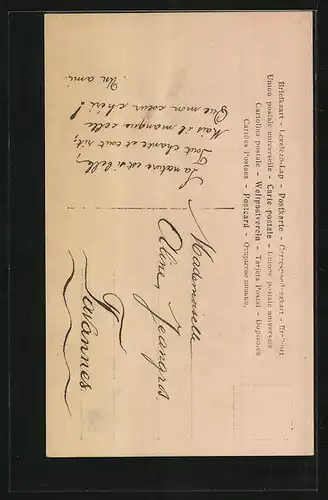 Briefkaart - Levelező-Lap - Postkarte - Correspondenzkart - Brefkort
Union postale universelle - Carte postale - Unione postale universale
Cartolina postale - Weltpostverein - Tarjeta Postal - Dopisnice
Cartões Postaes - Postcard - Открытое письмо.
La nature est si belle,
Tout chante et tout rit,
Mais il manque celle
Que mon cœur chéri!
. Un ami.
Mademoiselle
Aline Jeangros.
Tavannes.